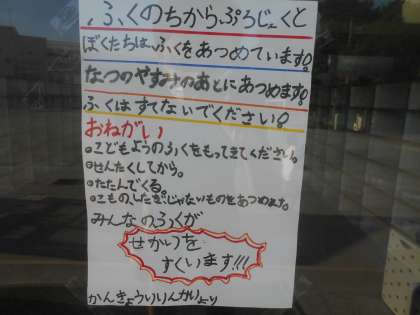 ふくのちからぷろじぇくと
ぼくたちは、ふくをあつめています!
なつのやすみのあとにあつめます!
ふくはすてないでください!
おねがい
•こどもようのふくをもってきてください。
•せんたくしてから。
•たたんでくる。
みんなのふくが
せかいを
すくいます!!!
かんきょういいんかいより